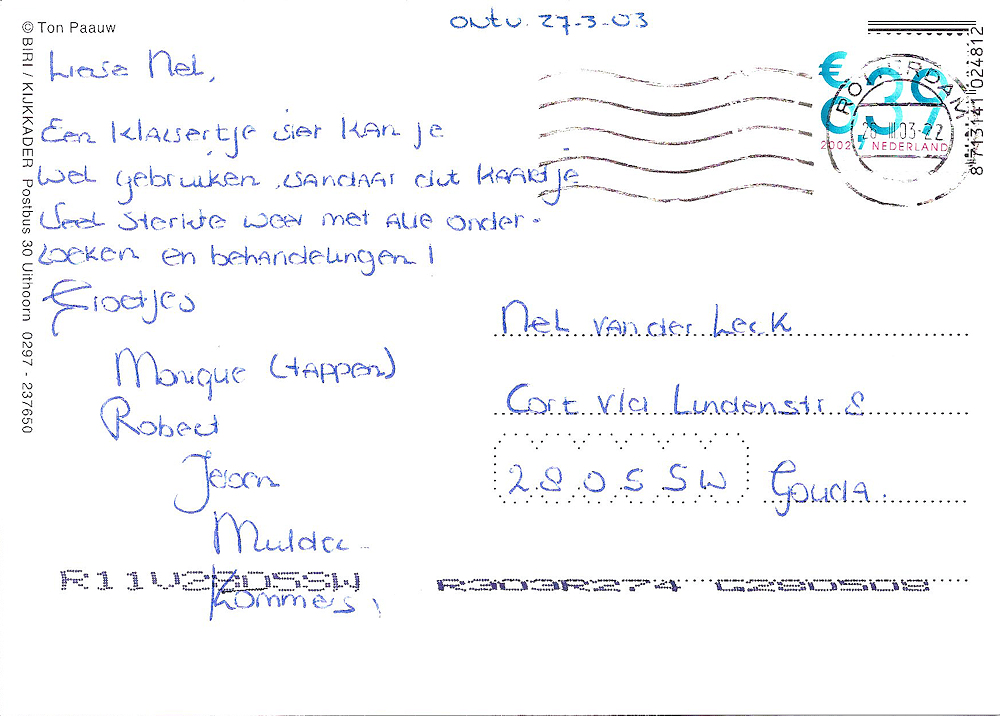 © Ton Paauw
© BIRI / KIJKKADER Postbus 30 Uithoorn 0297 - 237650
ontv. 27-3-03
Lieve Nel,
Een klavertje vier kan je
wel gebruiken, vandaar dit kaartje
Veel sterkte weer met alle onder-
zoeken en behandelingen!
Groetjes
Monique (tappen)
Robert
Jeroen
Mulder
Kommers
€ 0,39
2002 NEDERLAND
ROTTERDAM
26 III 03-22
8713141 024812
Nel van der Leck
Cort v/d Lindenstr 8
2805SW Gouda.
R11U22805SW
R303R274 C280508